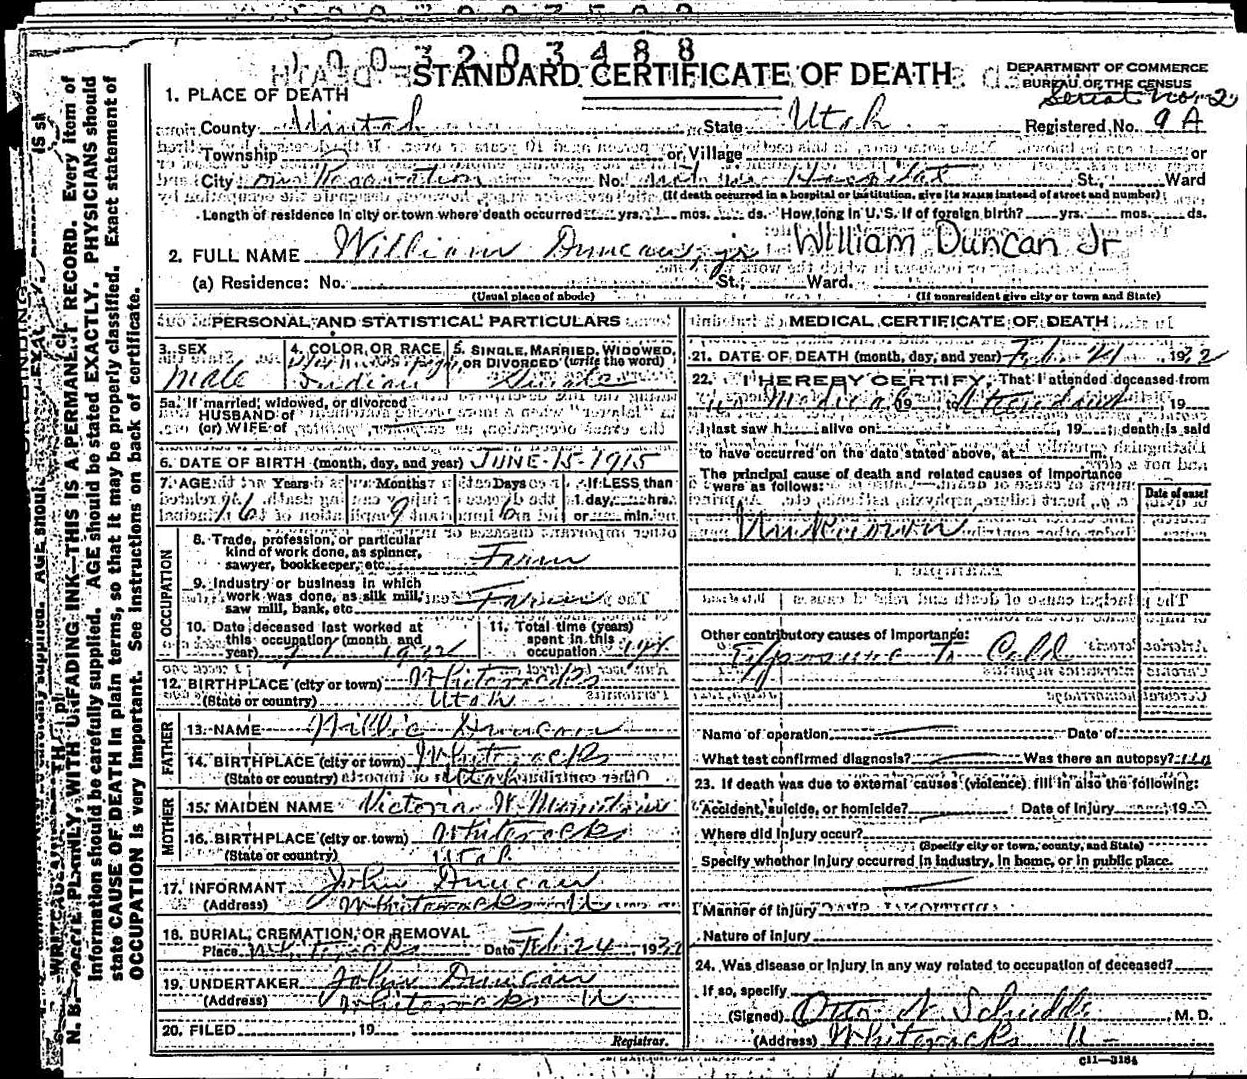 1003203488
STANDARD CERTIFICATE OF DEATH
DEPARTMENT OF COMMERCE
BUREAU OF THE CENSUS
Serial No. 2
1. PLACE OF DEATH
County Uintah State Utah Registered No. 9 A
Township or Village or
City on Reservation No. not in Hospital St., Ward
(If death occurred in a hospital or institution, give its NAME instead of street and number)
Length of residence in city or town where death occurred yrs. mos. ds. How long in U. S. if of foreign birth? yrs. mos. ds.
2. FULL NAME William Duncan, jr William Duncan Jr
(a) Residence: No. St., Ward.
(Usual place of abode) (If nonresident give city or town and State)
PERSONAL AND STATISTICAL PARTICULARS
3. SEX
Male
4. COLOR OR RACE
Indian
5. SINGLE, MARRIED, WIDOWED, OR DIVORCED (write the word)
Single
5a. If married, widowed, or divorced
HUSBAND of
(or) WIFE of
6. DATE OF BIRTH (month, day, and year) JUNE-15-1915
7. AGE Years Months Days If LESS than
1 day, hrs.
or min.
16 9 6
OCCUPATION
8. Trade, profession, or particular kind of work done, as spinner, sawyer, bookkeeper, etc. Farm
9. Industry or business in which work was done, as silk mill, saw mill, bank, etc. Farm
10. Date deceased last worked at this occupation (month and year)
11. Total time (years) spent in this occupation
12. BIRTHPLACE (city or town) Whiterocks
(State or country) Utah
FATHER
13. NAME Willie Duncan
14. BIRTHPLACE (city or town) Whiterocks
(State or country) Utah
MOTHER
15. MAIDEN NAME Victoria W. Mountain
16. BIRTHPLACE (city or town) Whiterocks
(State or country) Utah
17. INFORMANT John Duncan
(Address) Whiterocks U
18. BURIAL, CREMATION, OR REMOVAL
Place Whiterocks Date Feb. 24, 1932
19. UNDERTAKER John Duncan
(Address) Whiterocks U
20. FILED , 19
Registrar.
MEDICAL CERTIFICATE OF DEATH
21. DATE OF DEATH (month, day, and year) Feb. 21, 1932
22. I HEREBY CERTIFY, That I attended deceased from
no Medical 19 Attendant, 19
I last saw h alive on , 19 ; death is said
to have occurred on the date stated above, at m.
The principal cause of death and related causes of importance were as follows:
Date of onset
Unknown
Other contributory causes of importance:
Exposure to Cold
Name of operation Date of
What test confirmed diagnosis? Was there an autopsy? no
23. If death was due to external causes (violence) fill in also the following:
Accident, suicide, or homicide? Date of injury 19
Where did injury occur?
(Specify city or town, county, and State)
Specify whether injury occurred in industry, in home, or in public place.
Manner of injury
Nature of injury
24. Was disease or injury in any way related to occupation of deceased?
If so, specify
(Signed) Otto N. Schudde, M. D.
(Address) Whiterocks U
C11—3184
N. B.—WRITE PLAINLY, WITH UNFADING INK—THIS IS A PERMANENT RECORD. Every item of
information should be carefully supplied. AGE should be stated EXACTLY. PHYSICIANS should
state CAUSE OF DEATH in plain terms, so that it may be properly classified. Exact statement of
OCCUPATION is very important. See instructions on back of certificate.